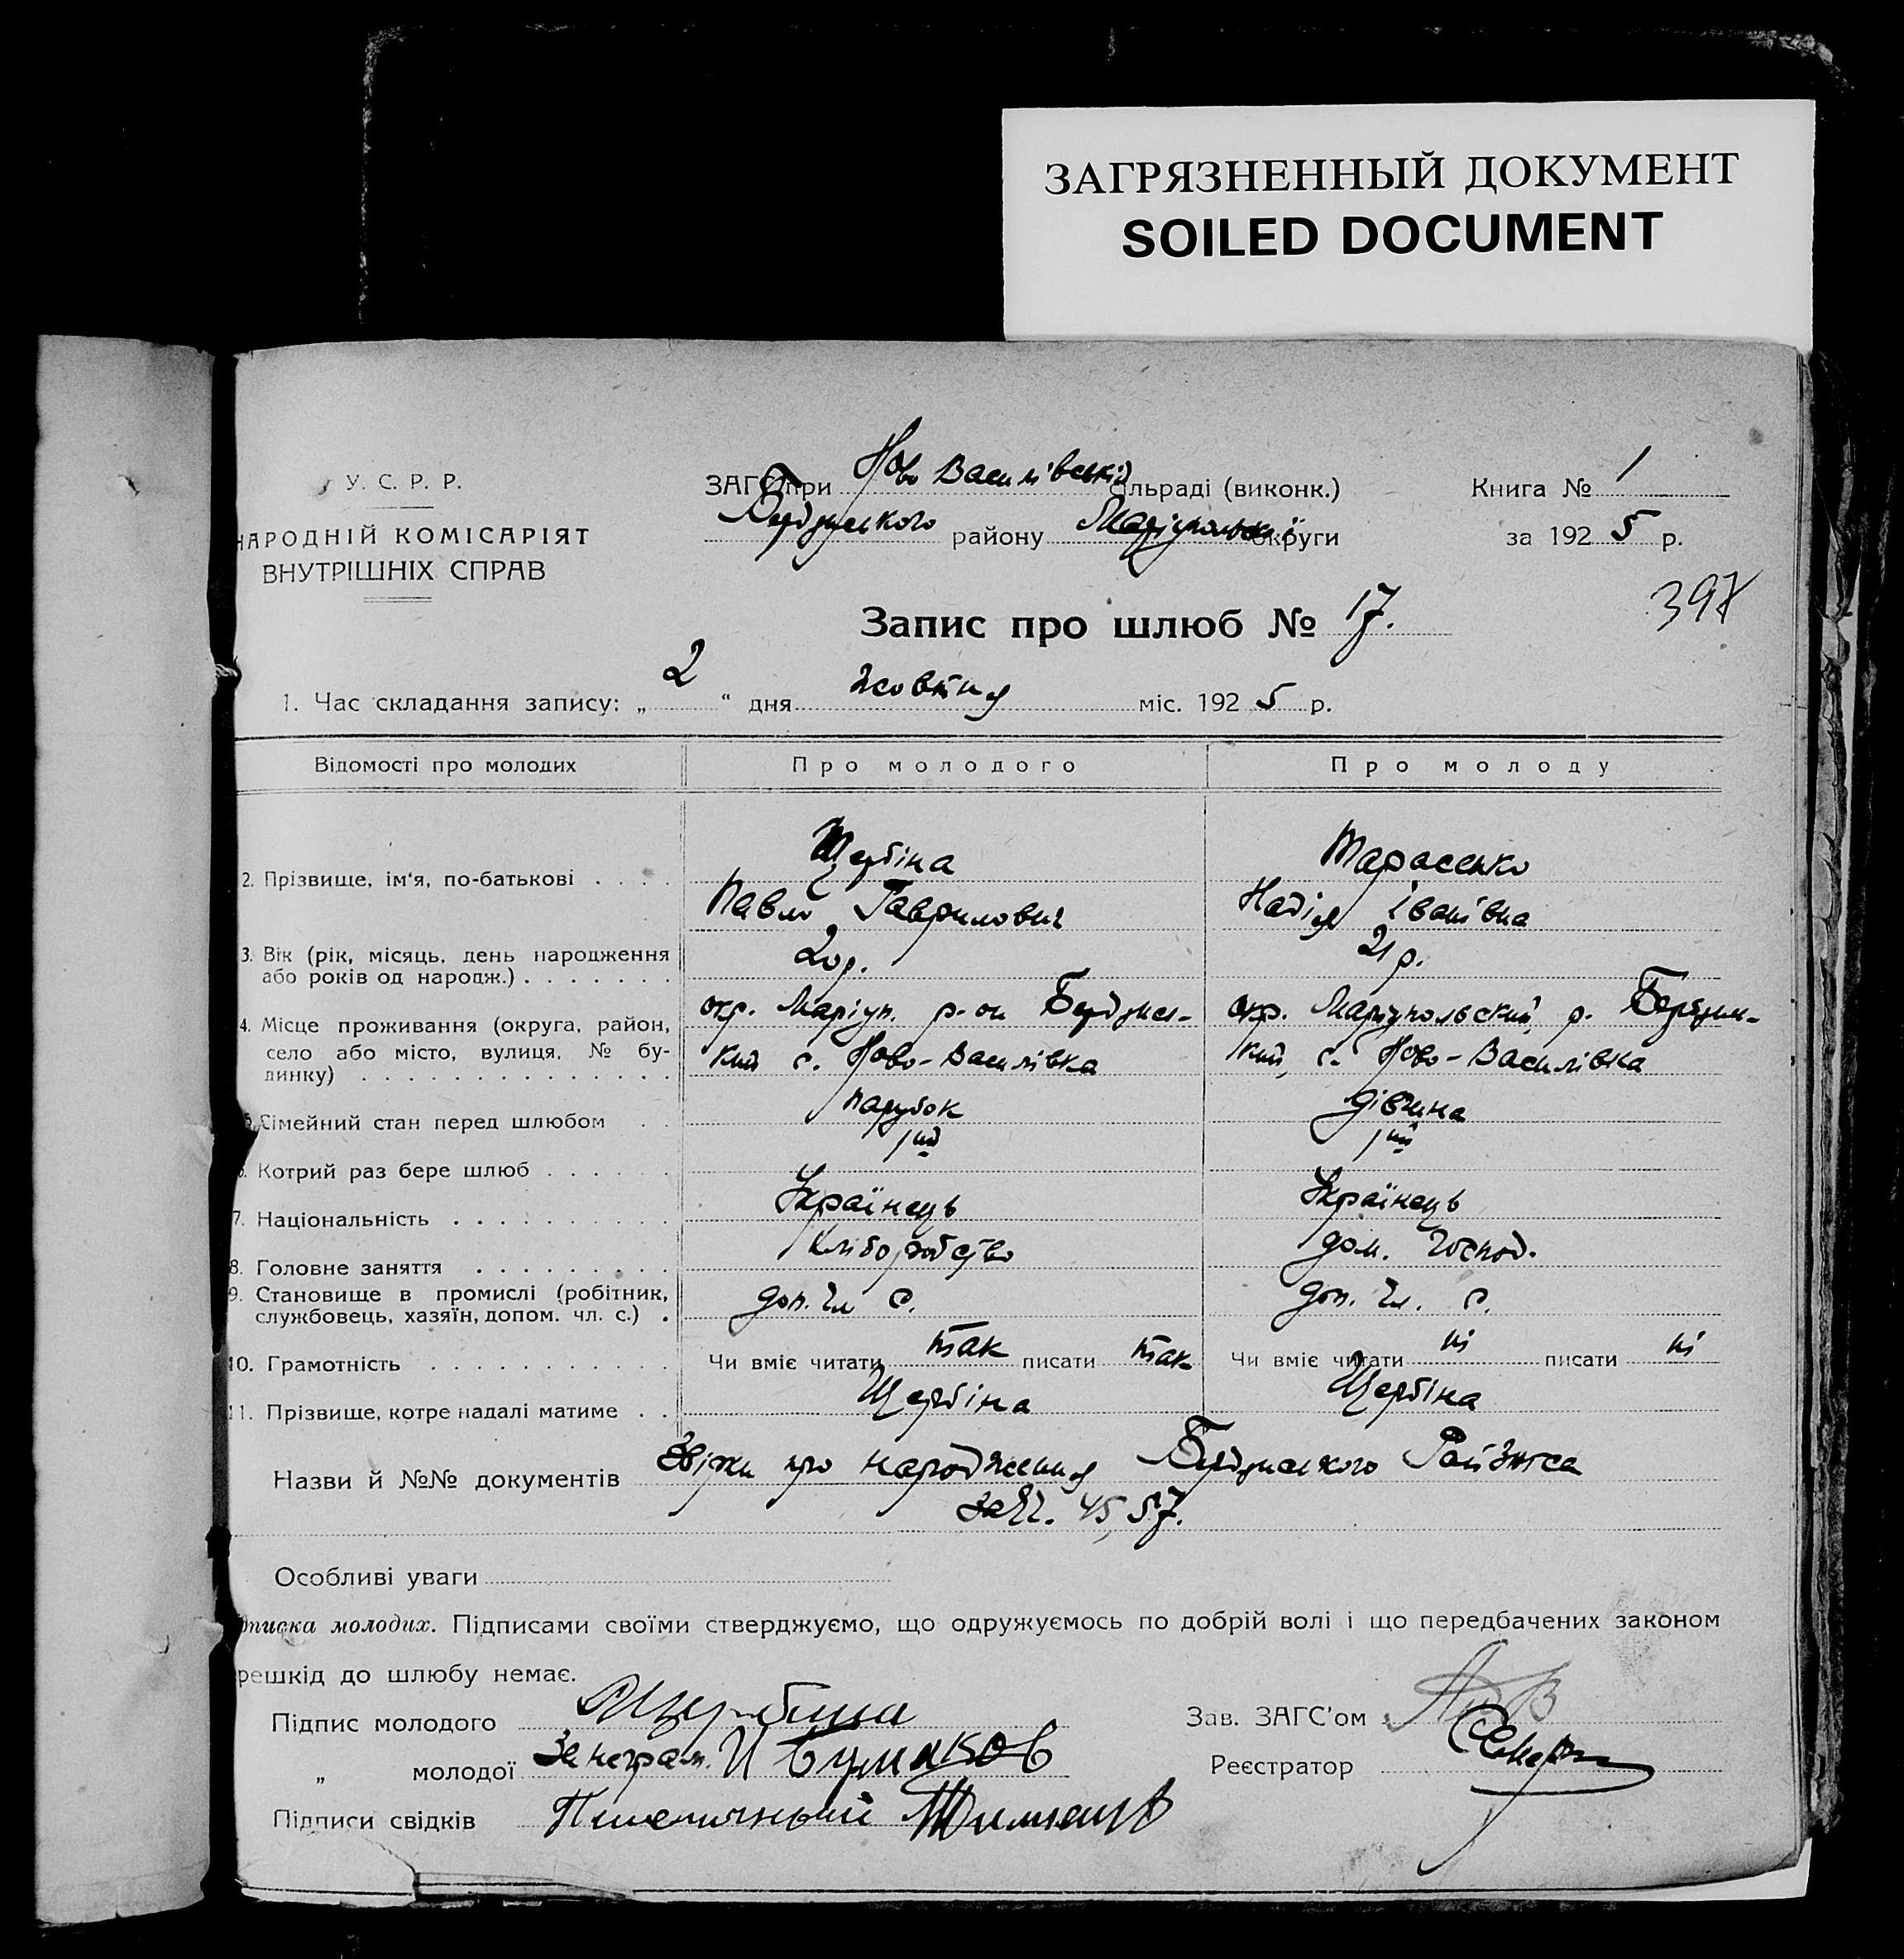 ЗАГРЯЗНЕННЫЙ ДОКУМЕНТ
SOILED DOCUMENT
У. С. Р. Р.
НАРОДНІЙ КОМІСАРІЯТ
ВНУТРІШНІХ СПРАВ
ЗАГС при Ново Василівській сільраді (виконк.)
Бердянського району Маріупольської округи
Книга № 1
за 1925 р.
397
Запис про шлюб № 17.
1. Час складання запису: „ 2 “ дня жовтня міс. 1925 р.
Відомості про молодих Про молодого Про молоду
Щербіна Тарасенко
2. Прізвище, ім‘я, по-батькові . . . .
Павло Гаврилович Надія Іванівна
3. Вік (рік, місяць, день народження 20 р. 21 р.
або років од народж.) . . . . . . .
окр. Маріуп. р-он Бердянсь- окр. Маріупольский, р. Бердян-
4. Місце проживання (округа, район,
село або місто, вулиця, № бу- кий с. Ново-Василівка кий, с. Ново-Василівка
динку) . . . . . . . . . . . . . .
5. Сімейний стан перед шлюбом . . парубок дівчина
6. Котрий раз бере шлюб . . . . . 1ий 1ий
7. Національність . . . . . . . . . . Українець Українець
8. Головне заняття . . . . . . . . . Хліборобство дом. господ.
9. Становище в промислі (робітник,
службовець, хазяїн, допом. чл. с.) . доп. чл с. доп. чл. с.
10. Грамотність . . . . . . . . . . . Чи вміє читати так писати так Чи вміє читати ні писати ні
11. Прізвище, котре надалі матиме . . Щербіна Щербіна
Назви й №№ документів про народження Бердянського РайЗагса
за № 45, 57.
Особливі уваги
дписка молодих. Підписами своїми стверджуємо, що одружуємось по добрій волі і що передбачених законом
решкід до шлюбу немає.
Підпис молодого Щербина Зав. ЗАГС’ом
„ молодої За неграм. И Бумаков Реєстратор
Підписи свідків Пшеничный